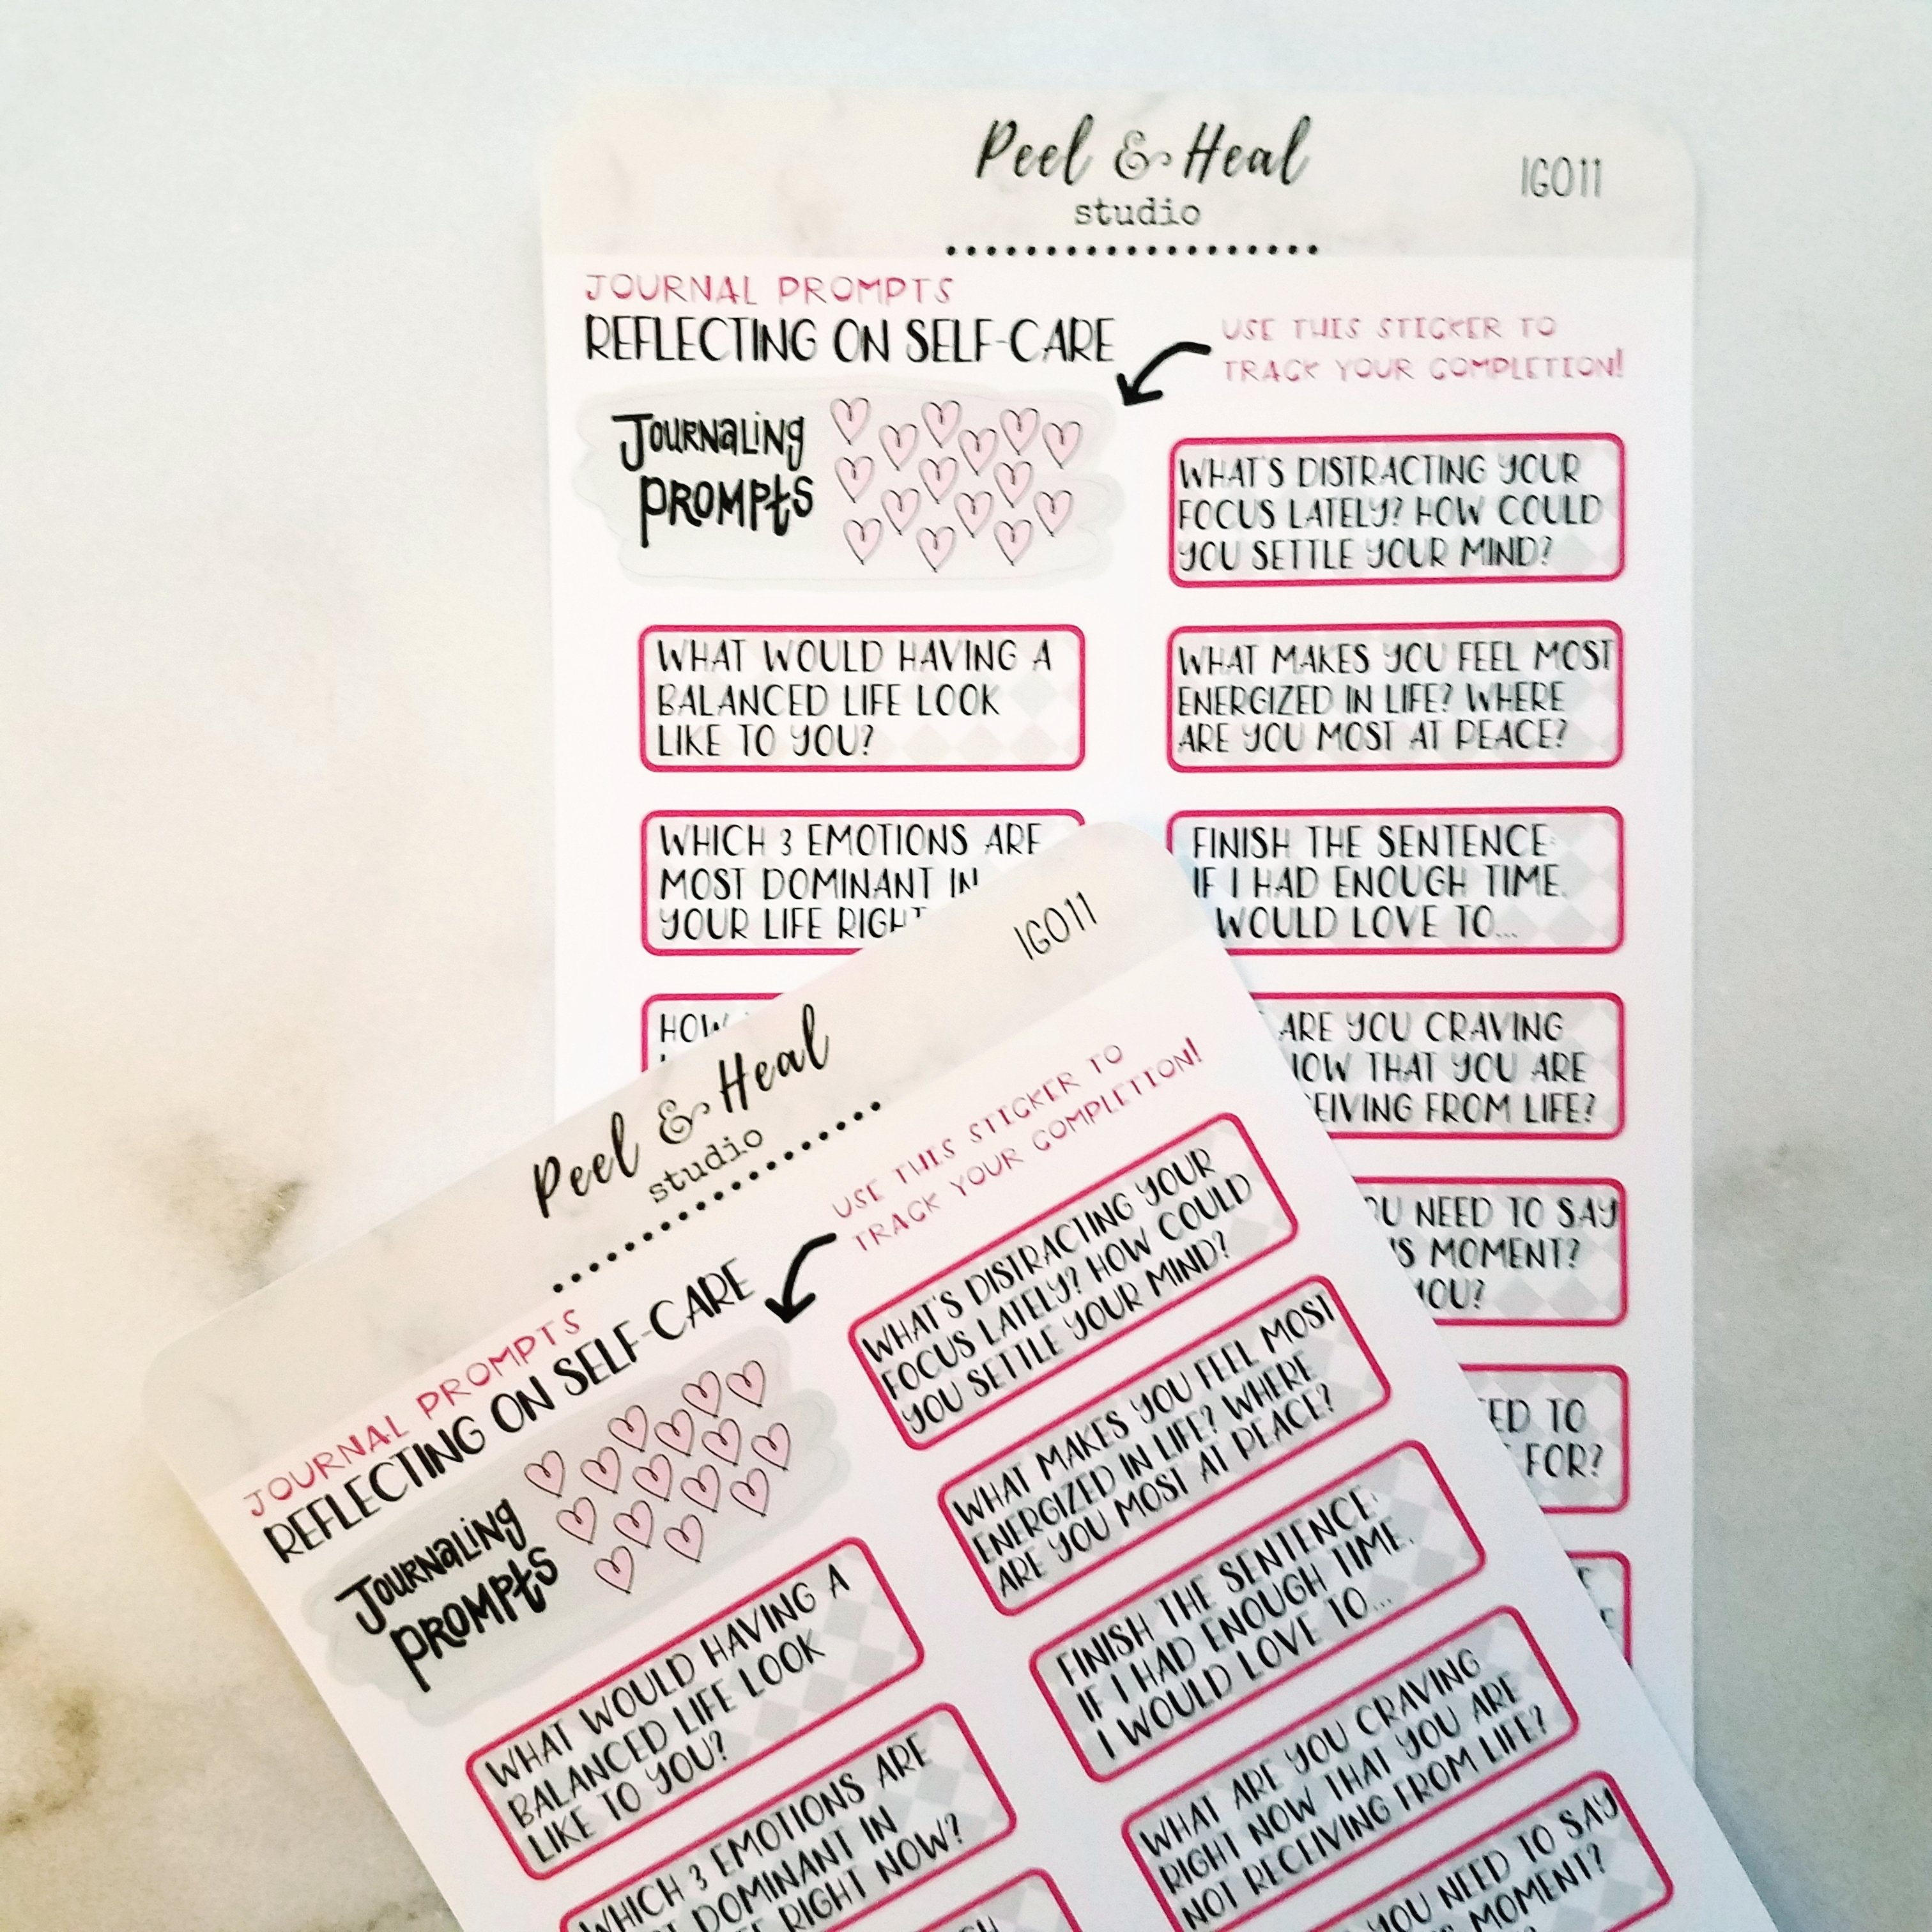 Peel & Heal
studio
IG011
JOURNAL PROMPTS
REFLECTING ON SELF-CARE
USE THIS STICKER TO
TRACK YOUR COMPLETION!
JOURNALING
PROMPTS
WHAT'S DISTRACTING YOUR
FOCUS LATELY? HOW COULD
YOU SETTLE YOUR MIND?
WHAT WOULD HAVING A
BALANCED LIFE LOOK
LIKE TO YOU?
WHAT MAKES YOU FEEL MOST
ENERGIZED IN LIFE? WHERE
ARE YOU MOST AT PEACE?
WHICH 3 EMOTIONS ARE
MOST DOMINANT IN
YOUR LIFE RIGHT
FINISH THE SENTENCE:
IF I HAD ENOUGH TIME,
WOULD LOVE TO...
HOW
ARE YOU CRAVING
THAT YOU ARE
FROM LIFE?
NEED TO SAY
MOMENT?
YOU?
TO
FOR?
Peel & Heal
studio
IG011
JOURNAL PROMPTS
REFLECTING ON SELF-CARE
USE THIS STICKER TO
TRACK YOUR COMPLETION!
JOURNALING
PROMPTS
WHAT'S DISTRACTING YOUR
FOCUS LATELY? HOW COULD
YOU SETTLE YOUR MIND?
WHAT MAKES YOU FEEL MOST
ENERGIZED IN LIFE? WHERE
ARE YOU MOST AT PEACE?
FINISH THE SENTENCE:
IF I HAD ENOUGH TIME,
I WOULD LOVE TO...
WHAT ARE YOU CRAVING
RIGHT NOW THAT YOU ARE
NOT RECEIVING FROM LIFE?
YOU NEED TO SAY
MOMENT?
WHAT WOULD HAVING A
BALANCED LIFE LOOK
LIKE TO YOU?
WHICH 3 EMOTIONS ARE
DOMINANT IN
RIGHT NOW?